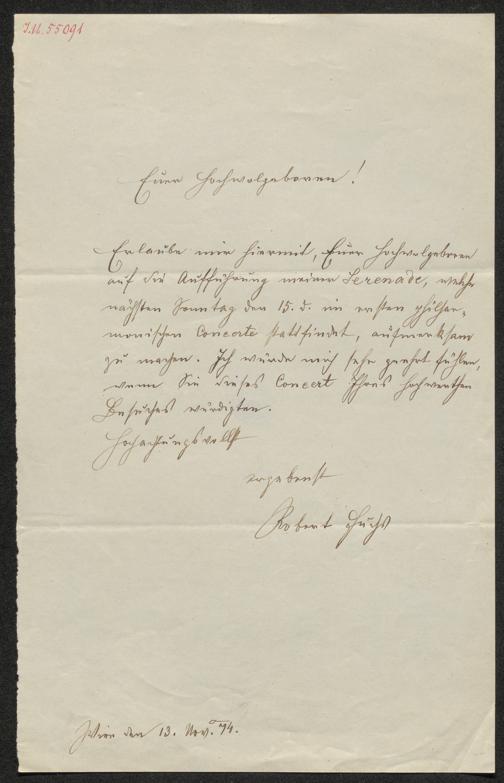 I.N. 55091
Euer Hochwolgeboren!
Erlaube mir hiermit, Euer Hochwolgeboren
auf die Aufführung meiner Serenade, welche
nächsten Sonntag den 15. d. im ersten philhar-
monischen Concerte stattfindet, aufmerksam
zu machen. Ich würde mich sehr geehrt fühlen,
wenn Sie dieses Concert Ihres hochwerthen
Besuches würdigten.
Hochachtungsvollst
ergebenst
Robert Fuchs
Wien den 13. Nov. 74.